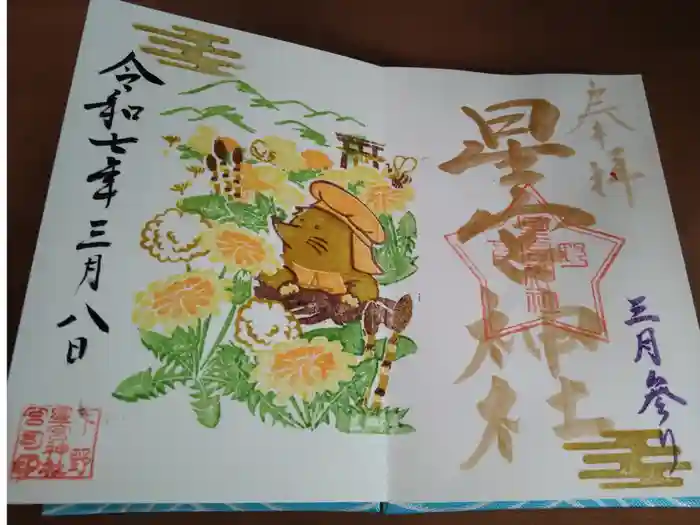 奉拝
星宮神社
三月参り
令和七年三月八日
下野
星宮神社
宮司印